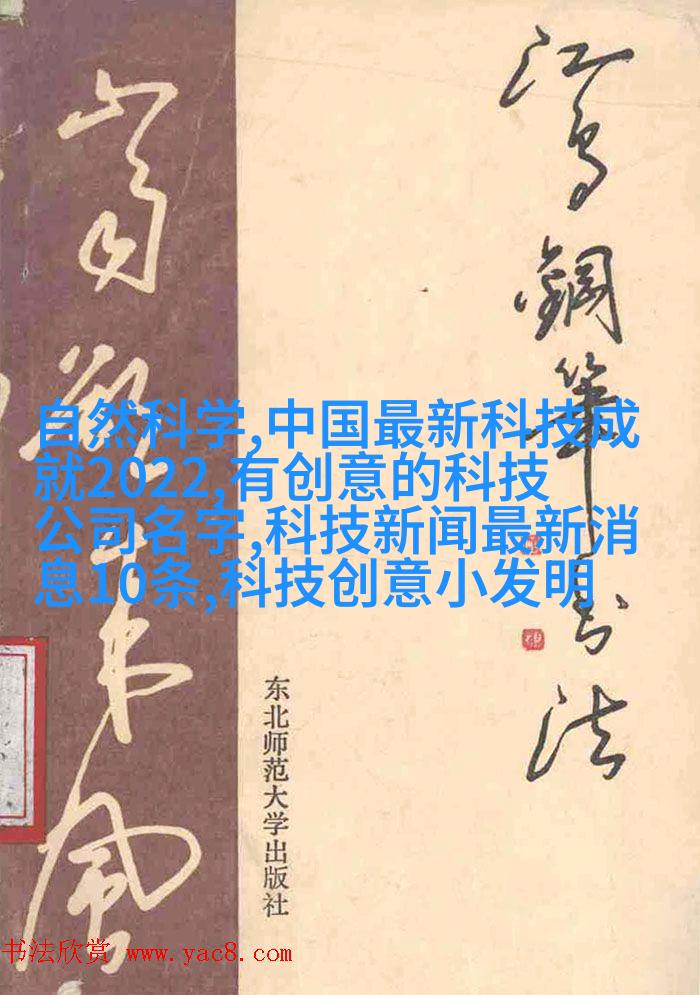 江鸟鋼筆书法
自然科学,中国最新科技成
就2022,有创意的科技
公司名字,科技新闻最新消
息10条,科技创意小发明
东北师范大学出版社
书法欣赏 www.yac8.com